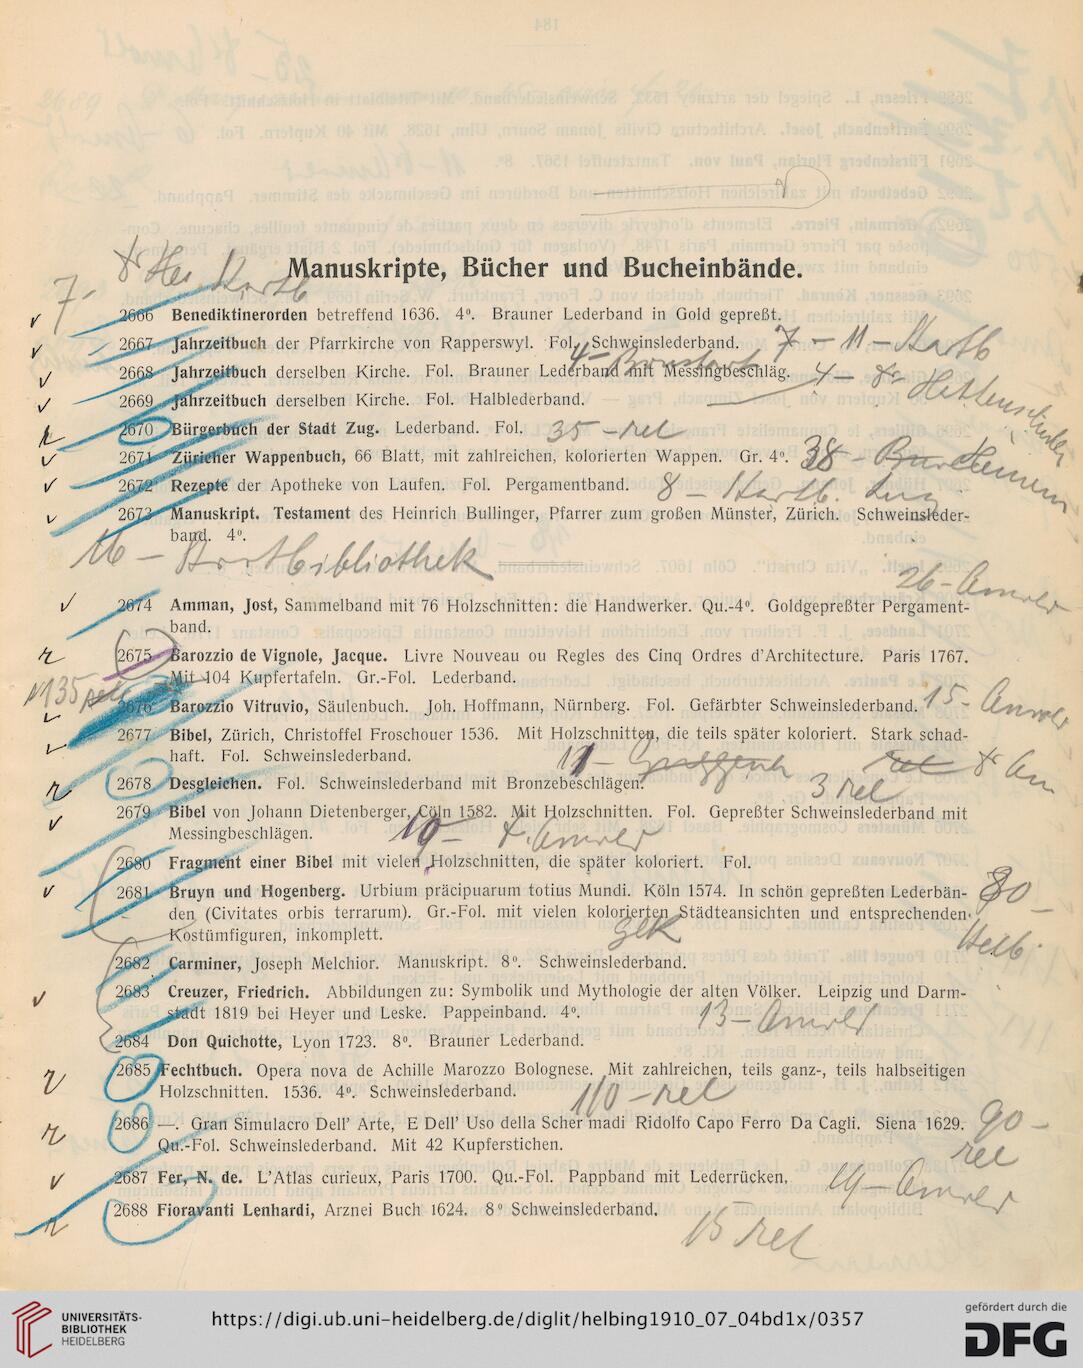 7.-
Manuskripte, Bücher und Bucheinbände.
2666 Benediktinerorden betreffend 1636. 4⁰. Brauner Lederband in Gold gepreßt.
2667 Jahrzeitbuch der Pfarrkirche von Rapperswyl. Fol. Schweinslederband. 7 – 11 – Hartb
2668 Jahrzeitbuch derselben Kirche. Fol. Brauner Lederband mit Messingbeschläg. 4 –
2669 Jahrzeitbuch derselben Kirche. Fol. Halblederband.
2670 Bürgerbuch der Stadt Zug. Lederband. Fol. 35 – rel
2671 Züricher Wappenbuch, 66 Blatt, mit zahlreichen, kolorierten Wappen. Gr. 4⁰. 38 –
2672 Rezepte der Apotheke von Laufen. Fol. Pergamentband. 8 – Hartb.
2673 Manuskript. Testament des Heinrich Bullinger, Pfarrer zum großen Münster, Zürich. Schweinsleder-
band. 4⁰.
16 –
26 – Amrler
2674 Amman, Jost, Sammelband mit 76 Holzschnitten: die Handwerker. Qu.-4⁰. Goldgepreßter Pergament-
band.
2675 Barozzio de Vignole, Jacque. Livre Nouveau ou Regles des Cinq Ordres d'Architecture. Paris 1767.
Mit 104 Kupfertafeln. Gr.-Fol. Lederband.
135 rel
2676 Barozzio Vitruvio, Säulenbuch. Joh. Hoffmann, Nürnberg. Fol. Gefärbter Schweinslederband. 15 – Amrler
2677 Bibel, Zürich, Christoffel Froschouer 1536. Mit Holzschnitten, die teils später koloriert. Stark schad-
haft. Fol. Schweinslederband. 11 –
2678 Desgleichen. Fol. Schweinslederband mit Bronzebeschlägen. 3 rel
2679 Bibel von Johann Dietenberger, Cöln 1582. Mit Holzschnitten. Fol. Gepreßter Schweinslederband mit
Messingbeschlägen. 19 – Amrler
2680 Fragment einer Bibel mit vielen Holzschnitten, die später koloriert. Fol.
2681 Bruyn und Hogenberg. Urbium präcipuarum totius Mundi. Köln 1574. In schön gepreßten Lederbän- 80 –
den (Civitates orbis terrarum). Gr.-Fol. mit vielen kolorierten Städteansichten und entsprechenden
Kostümfiguren, inkomplett.
2682 Carminer, Joseph Melchior. Manuskript. 8⁰. Schweinslederband.
2683 Creuzer, Friedrich. Abbildungen zu: Symbolik und Mythologie der alten Völker. Leipzig und Darm-
stadt 1819 bei Heyer und Leske. Pappeinband. 4⁰. 13 – Amrler
2684 Don Quichotte, Lyon 1723. 8⁰. Brauner Lederband.
2685 Fechtbuch. Opera nova de Achille Marozzo Bolognese. Mit zahlreichen, teils ganz-, teils halbseitigen
Holzschnitten. 1536. 4⁰. Schweinslederband. 110 – rel
2686 —. Gran Simulacro Dell' Arte, E Dell' Uso della Scher madi Ridolfo Capo Ferro Da Cagli. Siena 1629. 90 –
Qu.-Fol. Schweinslederband. Mit 42 Kupferstichen. rel
2687 Fer, N. de. L'Atlas curieux, Paris 1700. Qu.-Fol. Pappband mit Lederrücken. 19 – Amrler
2688 Fioravanti Lenhardi, Arznei Buch 1624. 8⁰ Schweinslederband.
15 rel
UNIVERSITÄTS-
BIBLIOTHEK
HEIDELBERG
https://digi.ub.uni-heidelberg.de/diglit/helbing1910_07_04bd1x/0357
gefördert durch die
DFG